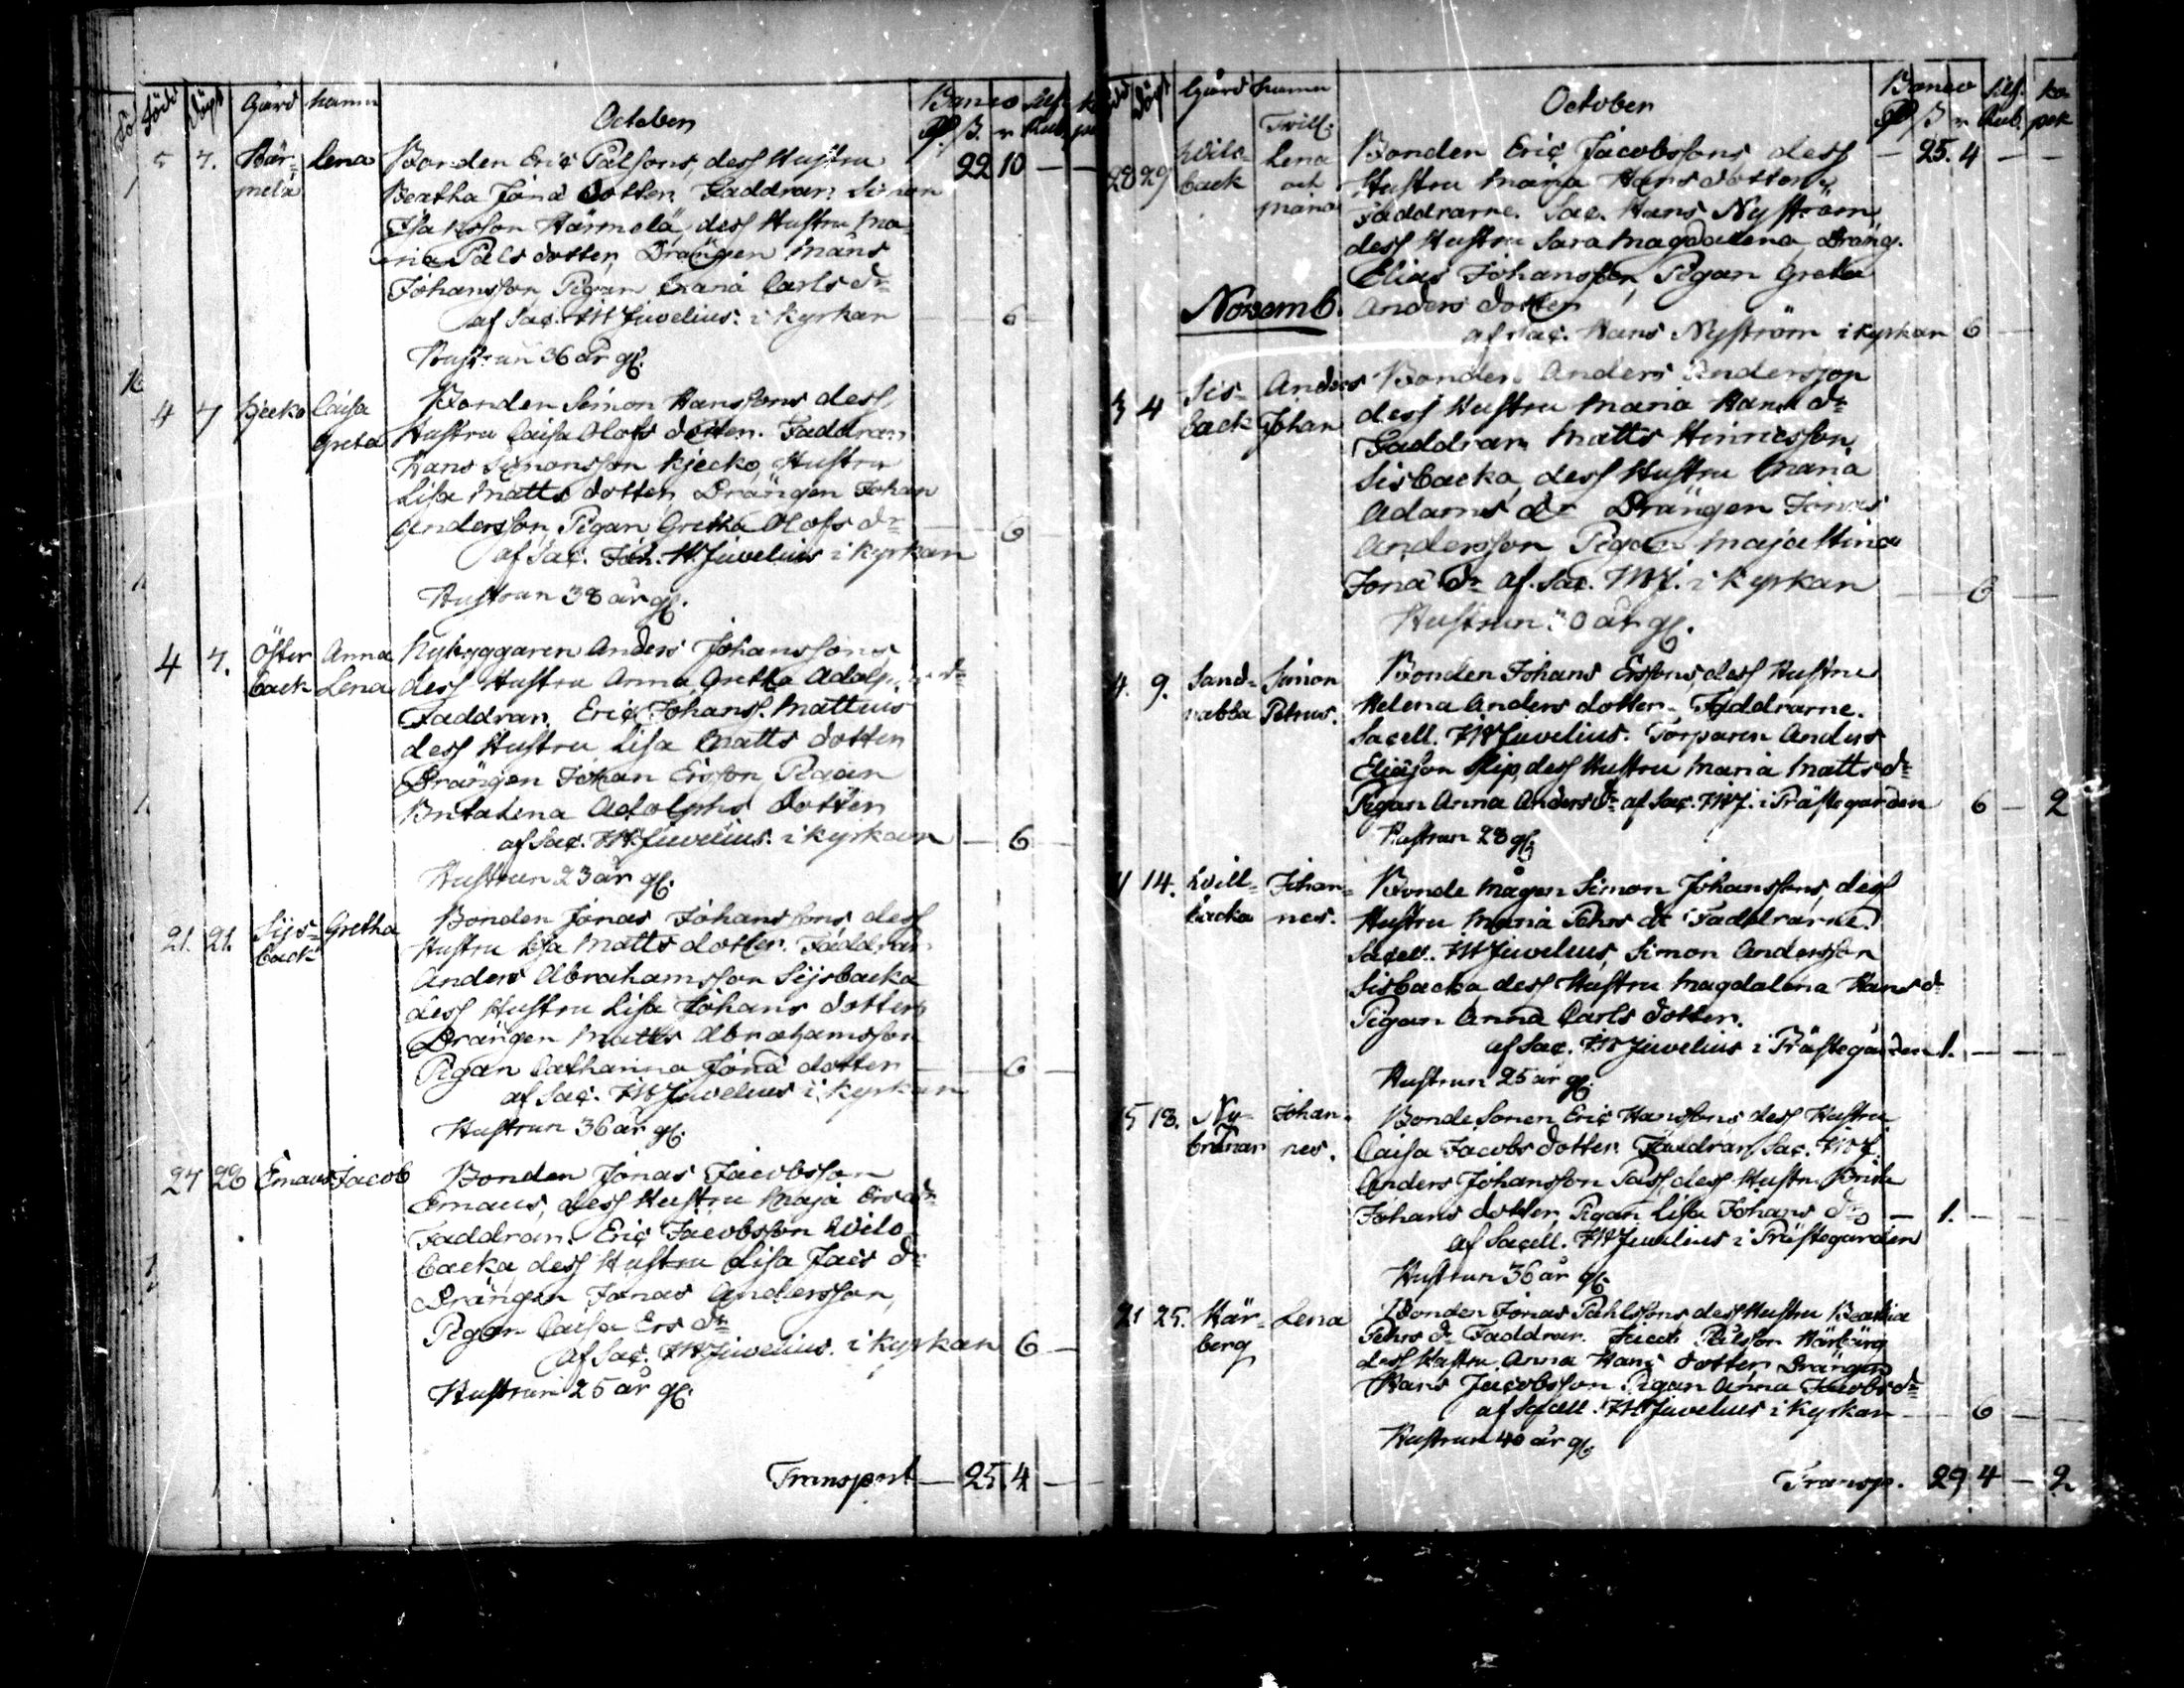 Född Döpt Gård namn October Banco Silf. Rub. ko pek
5 7. Här= melä Lena Bonden Eric Pålssons, dess Hustru — 22 10 — —
Beatha Jonæ dotter. Faddrar. Simon
Isaksson Härmelä, dess Hustru Ma=
ria Påls dotter, Drängen Måns
Johansson, Pigan Maria Carls dr
af Sac. JW Juvelius. i Kyrkan — 6 —
Hustrun 36 år gl.
4 7 Kjecko Caisa Greta Bonden Simon Hanssons dess
Hustru Caisa Olofs dotter. Faddrar
Hans Simonsson Kjecko, Hustru
Lisa Matts dotter, Drängen Johan
Andersson, Pigan Gretha Olofs dr — 6 —
af Sac. Joh. W. Juvelius i Kyrkan
Hustrun 38 år gl.
4 7. Öster back Anna Lena Nybyggaren Anders Johanssons
dess Hustru Anna Gretha Adolphs dr
Faddrar. Eric Johans. Matteus
dess Hustru Lisa Matts dotter
Drängen Johan Ersson, Pigan
Brita Lena Adolphs dotter
af Sac. JW Juvelius. i Kyrkan — 6 —
Hustrun 23 år gl.
21. 21. Sijs= back Gretha Bonden Jonas Johanssons dess
Hustru Lisa Matts dotter. Faddrar
Anders Abrahamsson Sijsbacka
dess Hustru Lisa Johans dotter
Drängen Matts Abrahamsson
Pigan Catharina Jonæ dotter — 6 —
af Sac. JW Juvelius i Kyrkan
Hustrun 36 år gl.
27 28 Emaus Jacob Bonden Jonas Jacobsson
Emaus, dess Hustru Maja Ers dr
Faddrar. Eric Jacobsson Wils
backa, dess Hustru Lisa Jacs dr
Drängen Jonas Andersson,
Pigan Caisa Ers dr
af Sac. JW Juvelius. i Kyrkan 6 —
Hustrun 25 år gl.
Transport — 25. 4 —
Född Döpt Gård namn October Banco Silf. Rub. ko pek
28 29 Wils= back Twill. Lena och Maria Bonden Eric Jacobssons dess — 25. 4 — —
Hustru Maria Hans dotter.
Faddrarne. Sac. Hans Nyström
dess Hustru Sara Magdalena, Dräng.
Elias Johansson, Pigan Greta
Anders dotter
Novemb.
af Sac. Hans Nyström i Kyrkan 6 —
3 4 Sis= back Anders Johan Bonden Anders Andersson
dess Hustru Maria Hans dr
Faddrar. Matts Hinricsson
Sisbacka, dess Hustru Maria
Adams dr Drängen Jonas
Andersson Pigan Maja Stina
Jonæ dr af. Sac. JWJ. i Kyrkan — 6 —
Hustrun 0 år gl.
4. 9. Sand= nabba Simon Petrus. Bonden Johans Erssons, dess Hustru
Helena Anders dotter. Faddrarne.
Sacell. JW Juvelius. Torparen Anders
Eliæson Slip, dess Hustru Maria Matts dr
Pigan Anna Anders dr af Sac. JWJ. i Prästegården 6 — 2
Hustrun 28 gl.
11 14. Will= backa Johan= nes. Bonde Mågen Simon Johanssons, dess
Hustru Maria Pehrs dr Faddrarne.
Sacell. JW Juvelius, Simon Andersson
Sisbacka dess Hustru Magdalena Hans dr
Pigan Anna Carls dotter.
af Sac. JW Juvelius i Prästegården 1. — — —
Hustrun 25 år gl.
15 18. Ny= brännar Johan= nes. Bonde Sonen Eric Hanssons dess Hustru
Caisa Jacobs dotter. Faddrar, Sac. JWJ.
Anders Johansson Pass, dess Hustru Brita
Johans dotter, Pigan Lisa Johans dr — 1. — —
af Sacell. JW Juvelius i Prästegården
Hustrun 36 år gl.
21 25. Här= berg Lena Bonden Jonas Pahlssons dess Hustru Beatha
Pehrs dr Faddrar. Jacob Pålsson Härbärg
dess Hustru Anna Hans dotter, Drängen
Hans Jacobsson. Pigan Anna Jacobs dr
af Sacell. JW Juvelius i Kyrkan — 6 —
Hustrun 40 år gl.
Transp. 29 4 — 2